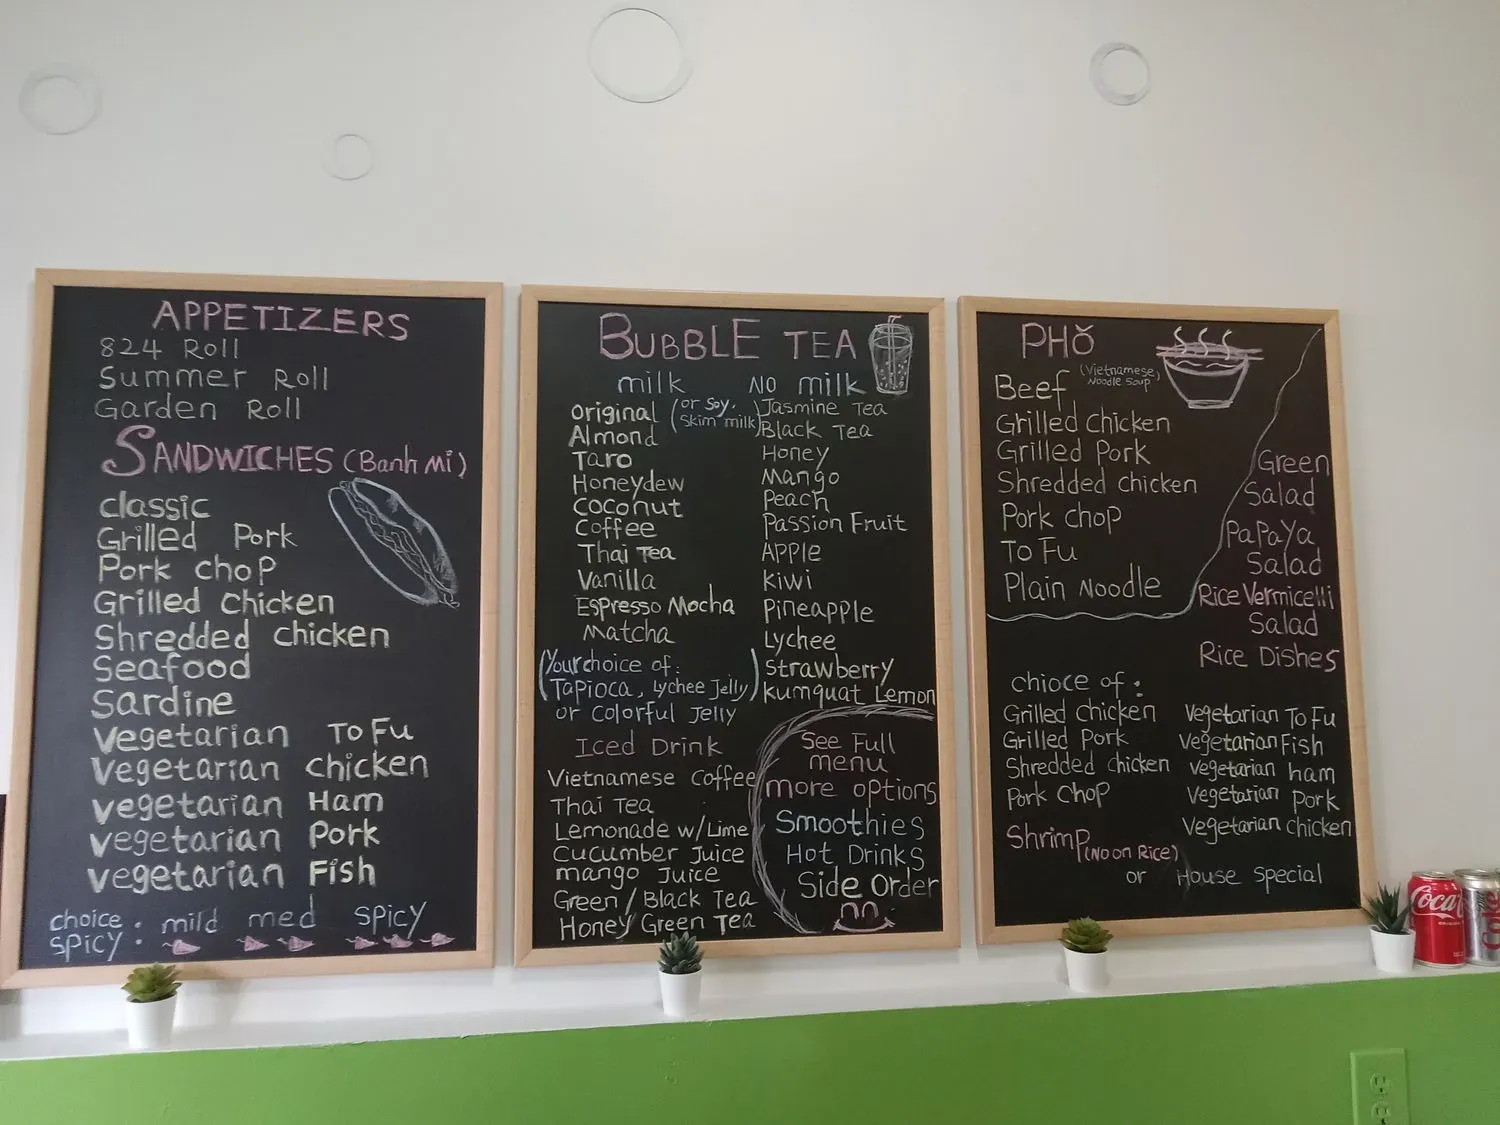 APPETIZERS
824 Roll
Summer Roll
Garden Roll
SANDWICHES (Banh Mi)
classic
Grilled Pork
Pork chop
Grilled chicken
Shredded chicken
Seafood
Sardine
vegetarian To Fu
vegetarian chicken
vegetarian Ham
vegetarian Pork
vegetarian Fish
choice : mild med spicy
spicy :
BUBBLE TEA
milk
original (or soy,
skim milk)
Almond
Taro
Honeydew
coconut
coffee
Thai Tea
Vanilla
Espresso Mocha
Matcha
(Your choice of:
Tapioca, lychee Jelly)
or colorful Jelly
NO milk
Jasmine Tea
Black Tea
Honey
Mango
Peach
Passion Fruit
APPLE
kiwi
Pineapple
Lychee
strawberry
kumquat Lemon
Iced Drink
Vietnamese Coffee
Thai Tea
Lemonade w/Lime
Cucumber Juice
mango Juice
Green / Black Tea
Honey Green Tea
See Full
menu
more options
Smoothies
Hot Drinks
Side Order
PHỞ
(Vietnamese
Noodle soup)
Beef
Grilled chicken
Grilled Pork
Shredded chicken
Pork chop
To Fu
Plain Noodle
Green
Salad
PaPaYa
Salad
Rice Vermicelli
Salad
Rice Dishes
chioce of :
Grilled chicken
Grilled Pork
Shredded chicken
Pork Chop
Shrimp (No on Rice)
Vegetarian To Fu
Vegetarian Fish
Vegetarian ham
Vegetarian Pork
Vegetarian chicken
or House special
Coca
Coke